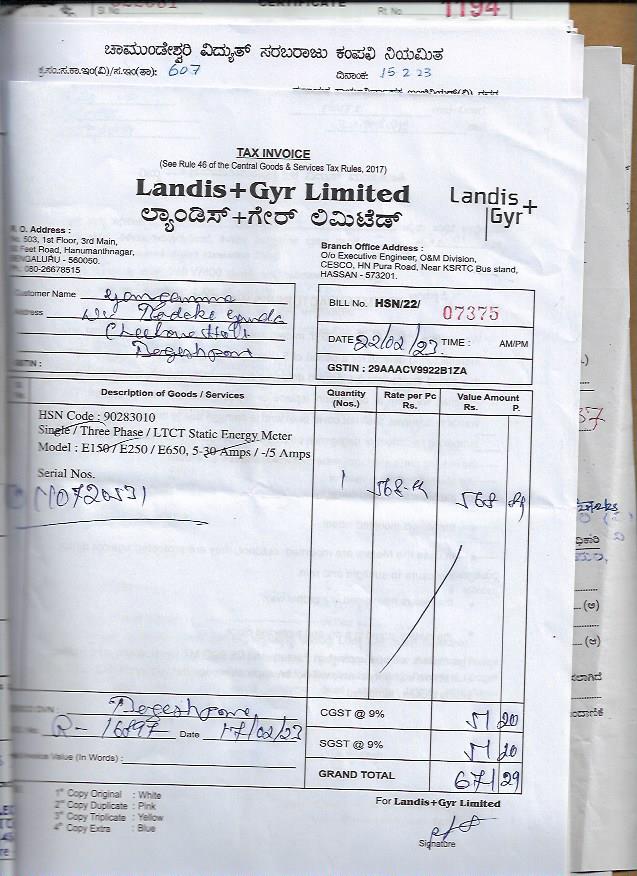 CERTIFICATE
Rt. No. 1194
ಚಾಮುಂಡೇಶ್ವರಿ ವಿದ್ಯುತ್ ಸರಬರಾಜು ಕಂಪನಿ ನಿಯಮಿತ
ಕ್ರ.ಸಂ:ಸ.ಕಾ.ಇಂ(ವಿ)/ಸ.ಇಂ(ತಾ): 607 ದಿನಾಂಕ: 15 2 23
TAX INVOICE
(See Rule 46 of the Central Goods & Services Tax Rules, 2017)
Landis+Gyr Limited
ಲ್ಯಾಂಡಿಸ್+ಗೇರ್ ಲಿಮಿಟೆಡ್
Landis+
Gyr
O. Address :
503, 1st Floor, 3rd Main,
Feet Road, Hanumanthnagar,
BENGALURU - 560050.
080-26678515
Branch Office Address :
O/o Executive Engineer, O&M Division,
CESCO, HN Pura Road, Near KSRTC Bus stand,
HASSAN - 573201.
Customer Name
Address
GSTIN :
BILL No. HSN/22/ 07375
DATE 22/02/23 TIME : AM/PM
GSTIN : 29AAACV9922B1ZA
Description of Goods / Services
Quantity (Nos.)
Rate per Pc Rs.
Value Amount
Rs. P.
HSN Code : 90283010
Single / Three Phase / LTCT Static Energy Meter
Model : E150 / E250 / E650, 5-30 Amps / -/5 Amps
Serial Nos.
1
568
Date 17/02/23
Invoice Value (In Words) :
CGST @ 9% 51 20
SGST @ 9% 51 20
GRAND TOTAL 671 29
1st Copy Original : White
2nd Copy Duplicate : Pink
3rd Copy Triplicate : Yellow
4th Copy Extra : Blue
For Landis+Gyr Limited
Signature